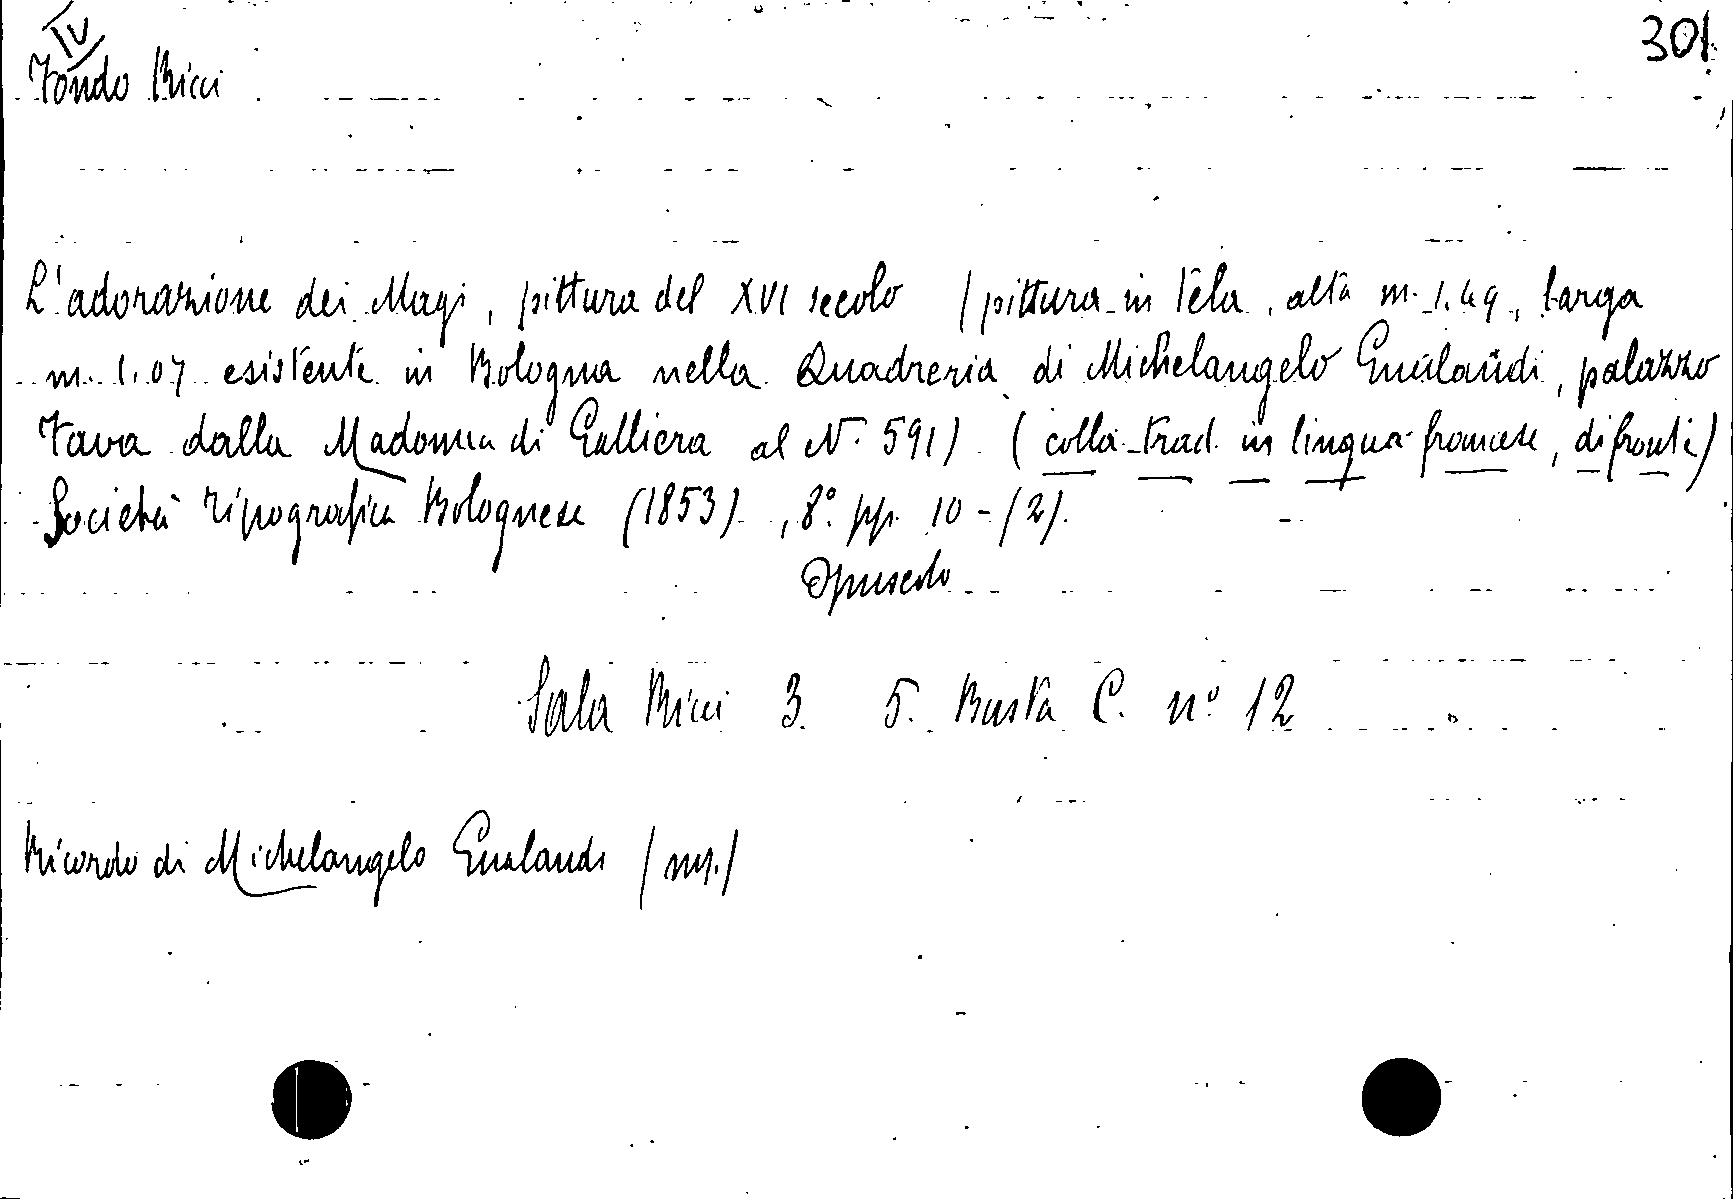 IV
301
Fondo Ricci
L'adorazione dei Magi, pittura del XVI secolo (pittura in tela, alta m. 1.49, larga
m. 1.07 esistente in Bologna nella Quadreria di Michelangelo Gualandi, palazzo
Fava dalla Madonna di Galliera al N. 591) (colla trad. in lingua francese, di fronte)
Società Tipografica Bolognese (1853), 8° pp. 10-(2).
Opuscolo
Sala Ricci 3. 5. Busta C. n° 12
Ricordo di Michelangelo Gualandi (ms.)